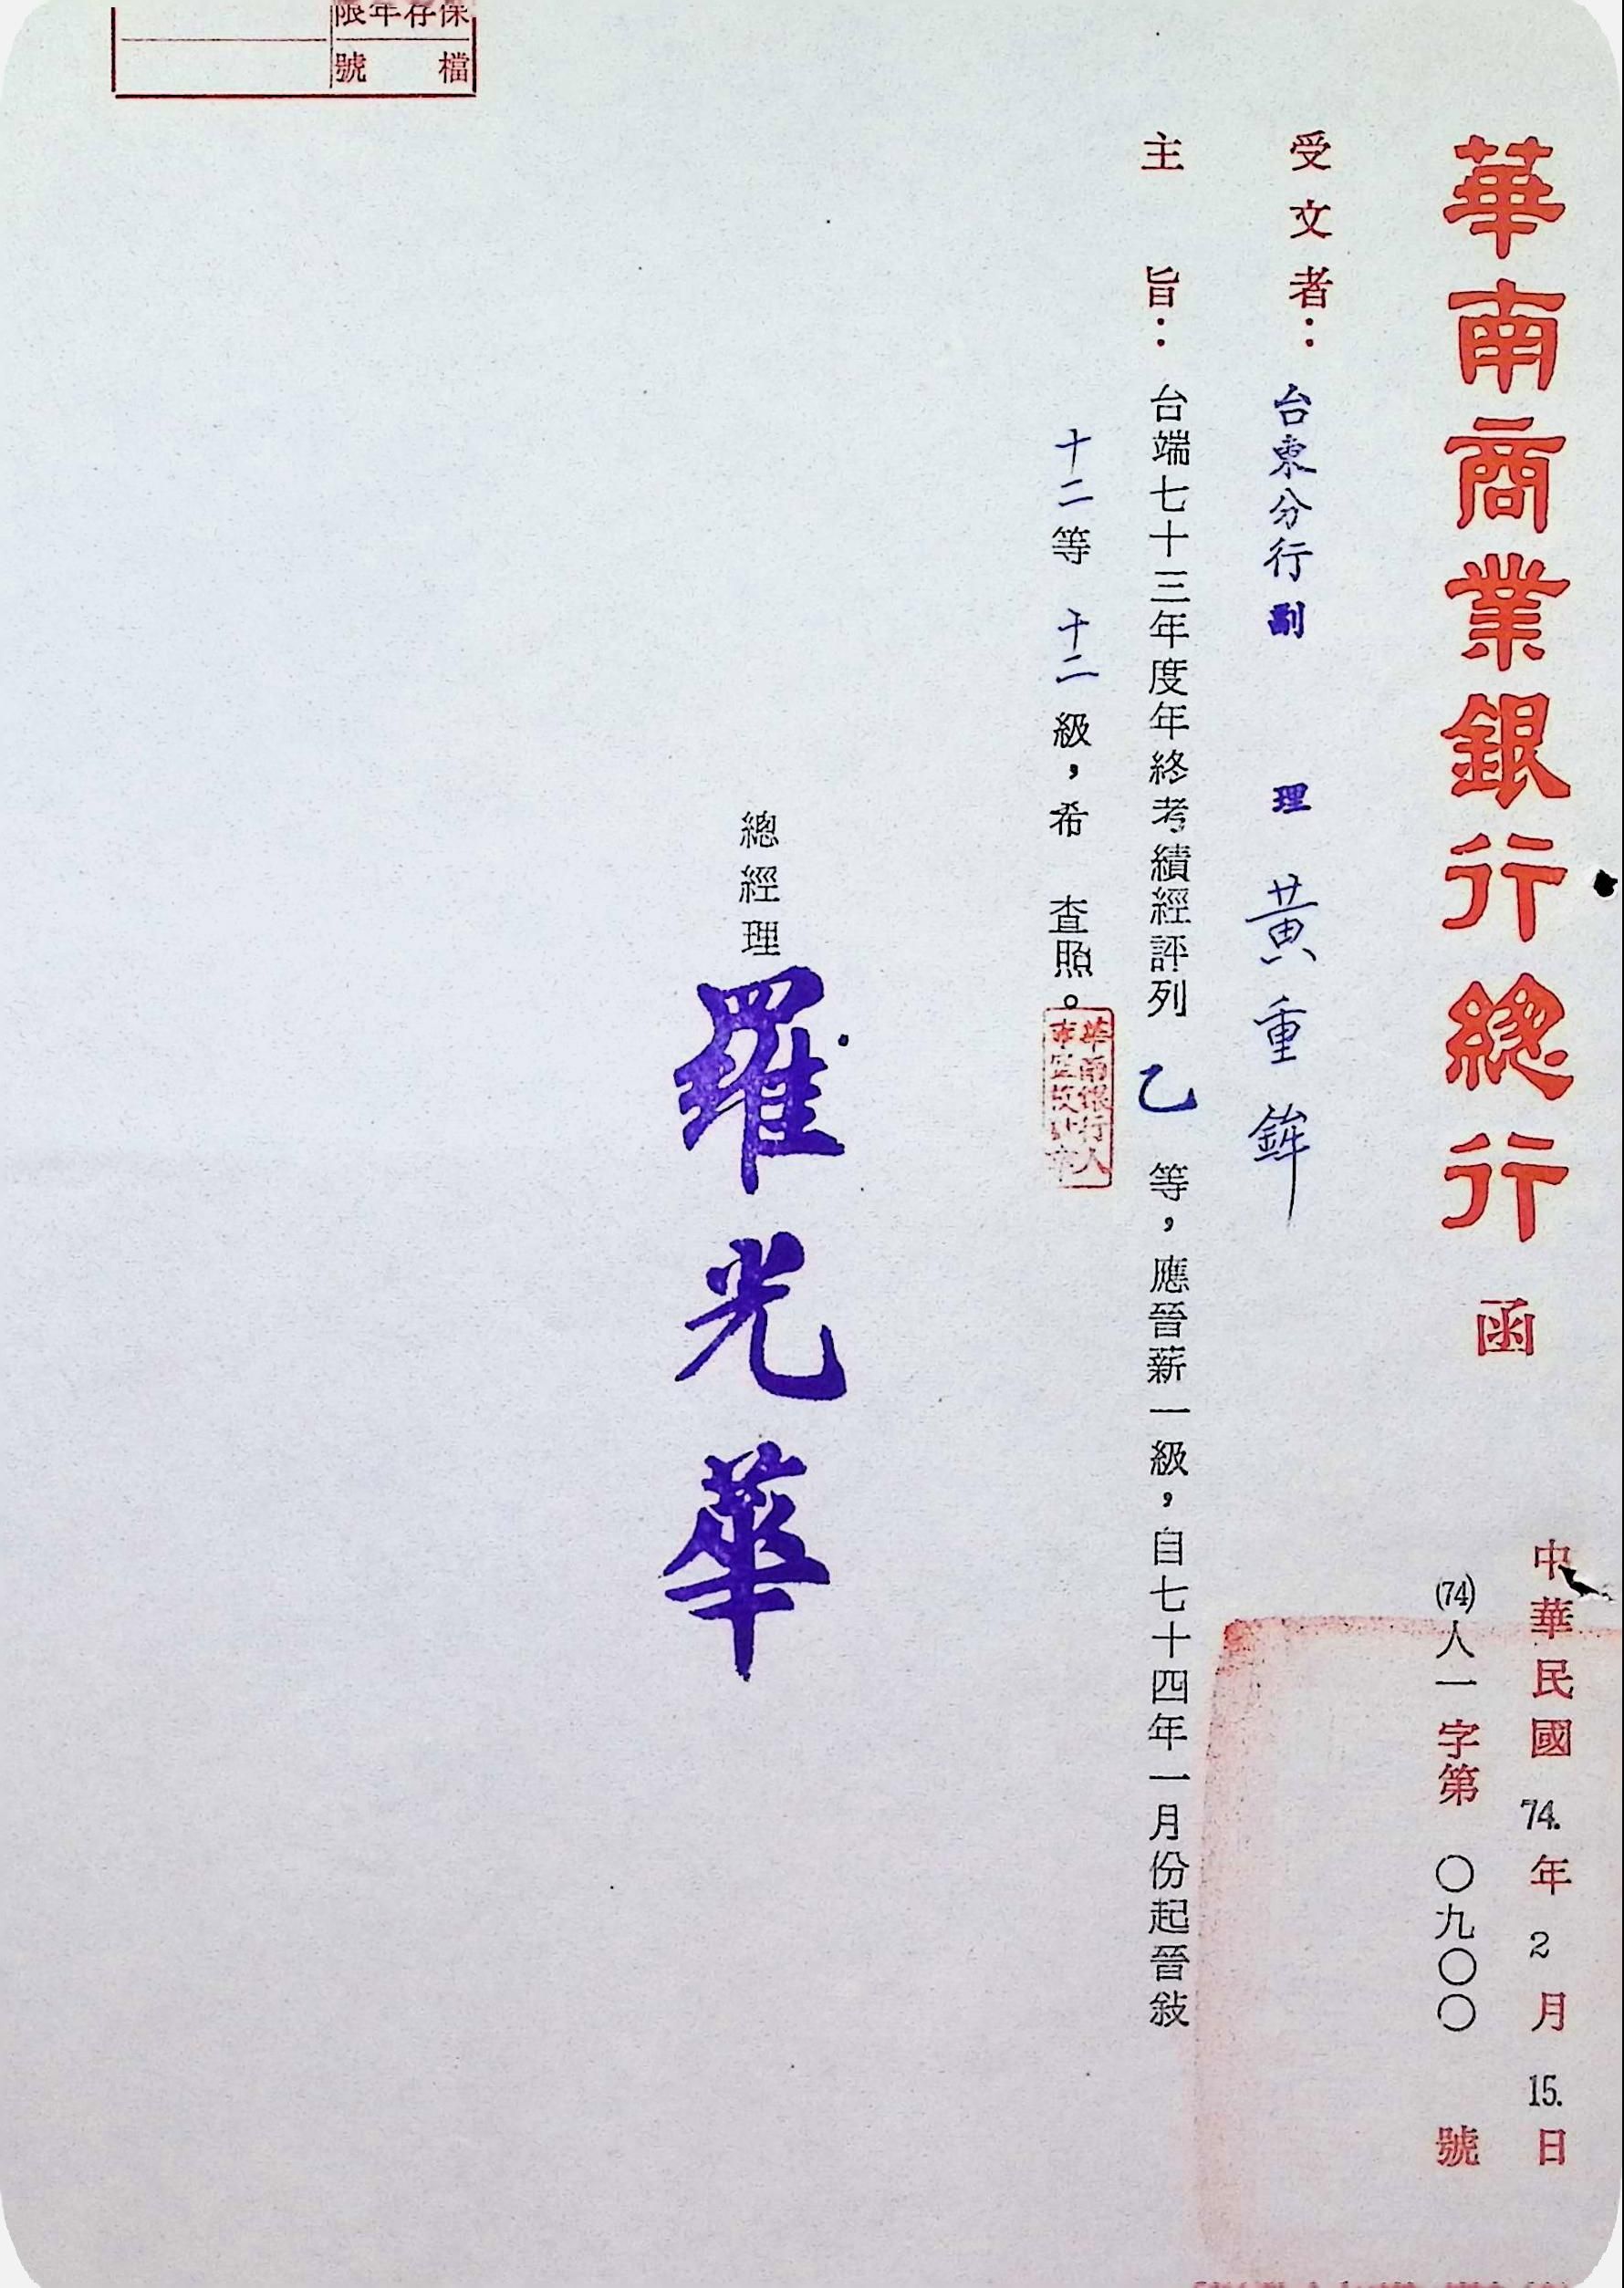 華南商業銀行總行 函
中華民國 74. 年 2 月 15. 日
(74)人一字第 〇九〇〇 號
受文者：台東分行副 理 黃重鉾
主 旨：台端七十三年度年終考績經評列 乙 等，應晉薪一級，自七十四年一月份起晉敍
十二等 十二 級，希 查照。
華南銀行人
總經理 羅光華
保存年限
檔 號